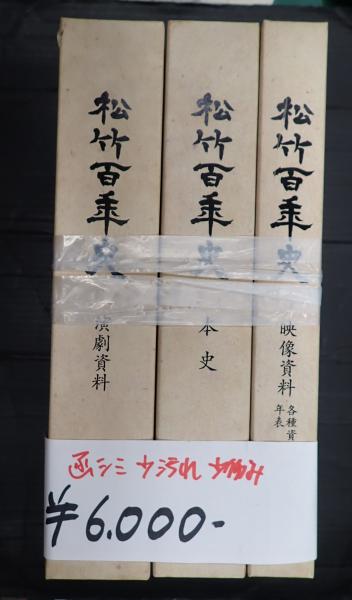 松竹百年史
演劇資料
松竹百年史
本史
松竹百年史
映像資料
各種資
年表
函シミ 少汚れ 少傷み
¥6.000-